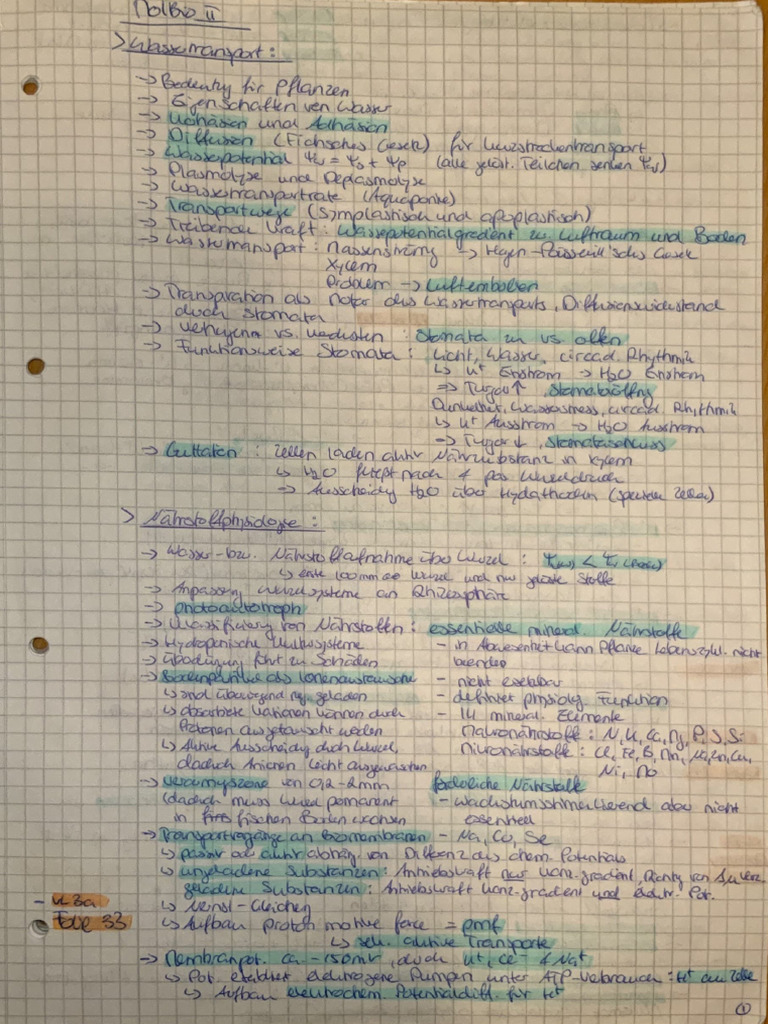 MolBio II
> Wassertransport:
→ Bedeutg für Pflanzen
→ Eigenschaften von Wasser
→ Kohäsion und Adhäsion
→ Diffusion (Ficksches Gesetz) für Kurzstreckentransport
→ Wasserpotential Ψw = Ψs + Ψp (alle gelöst. Teilchen senken Ψw)
→ Plasmolyse und Deplasmolyse
→ Wassertransportrate (Aquaporine)
→ Transportwege (Symplastisch und apoplastisch)
→ Treibende Kraft: Wasserpotentialgradient zw. Luftraum und Boden
→ Wassertransport: Massenströmg → Hagen-Poiseuill'sches Gesetz
Xylem
Problem → Luftembolien
→ Transpiration als Motor des Wassertransports, Diffusionswiderstand
durch Stomata
→ Verhungern vs. Verdursten: Stomata zu vs. offen
→ Funktionsweise Stomata: Licht, Wasser, circad. Rhythmik
↳ K⁺ Einstrom → H2O Einstrom
⇒ Turgor↑, Stomataöffng
Dunkelheit, Wasserstress, circad. Rhythmik
↳ K⁺ Ausstrom → H2O Ausstrom
→ Turgor↓, Stomataschluss
→ Guttation: Zellen laden aktiv Nährsubstanz in Xylem
↳ H2O fließt nach & pos Wurzeldruck
→ Ausscheidg H2O über Hydathoden (spezielle Zellen)
> Nährstoffphysiologie:
→ Wasser- bzw. Nährstoffaufnahme über Wurzel:
↳ erste 100mm der Wurzel und nur gelöste Stoffe
→ Anpassung Wurzelsysteme an Rhizosphäre
→ photoautotroph
→ Klassifizierg von Nährstoffen: essentielle mineral. Nährstoffe
→ Hydroponische Kultursysteme - in Abwesenheit kann Pflanze Lebenszykl. nicht
→ Überdüngung führt zu Schäden beenden
→ Bodenpartikel als Ionenaustauscher - nicht ersetzbar
↳ sind überwiegend neg. geladen - definiert physiolg. Funktion
↳ absorbierte Kationen können durch - 14 mineral. Elemente
Protonen ausgetauscht werden Makronährstoffe: N, K, Ca, Mg, P, S, Si
↳ Aktive Ausscheidg durch Wurzel, Mikronährstoffe: Cl, Fe, B, Mn, Na, Zn, Cu,
dadurch Anionen leicht ausgewaschen Ni, Mo
→ Verarmungszone von 0,2 - 2mm förderliche Nährstoffe
(dadurch muss Wurzel permanent - wachstumsstimulierend aber nicht
in frischen Boden wachsen essentiell
→ Transportvorgänge an Biomembranen - Na, Co, Se
↳ passiv oder aktiv abhäng. von Differenz des chem. Potentials
↳ ungeladene Substanzen: Antriebskraft nur Konz.gradient, Richtg von
geladene Substanzen: Antriebskraft Konz-gradient und elektr. Pot.
↳ Nernst-Gleichen
- K3a
Folie 33
↳ Aufbau proton motive force = pmf
↳ sek. aktive Transporte
→ Membranpot. ca. -150mV, durch K⁺, Cl⁻ & Na⁺
↳ Pot. etabliert elektrogene Pumpen unter ATP-Verbrauch: H⁺ aus Zelle
↳ Aufbau elektrochem. Potentialdiff. für H⁺
1